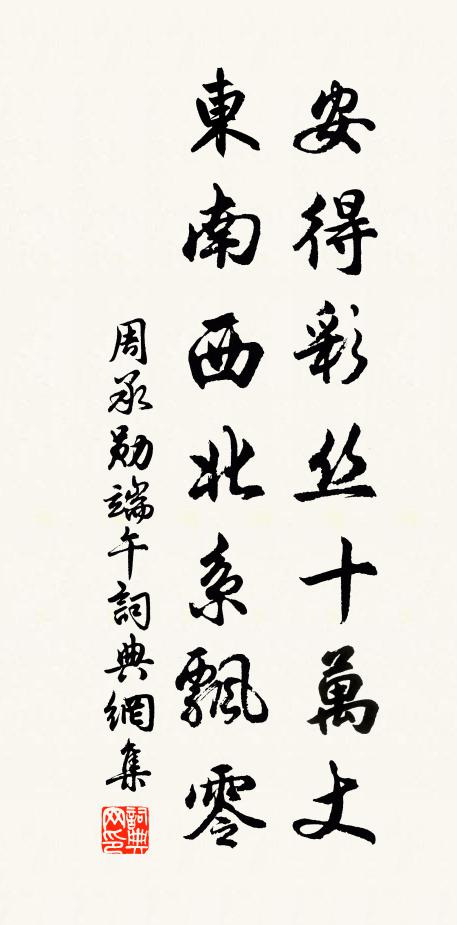 安得彩丝十萬丈
東南西北系飄零
周承勛端午詞典網集
詞典网印